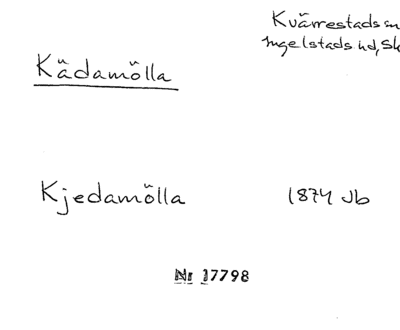 Kvärrestads sn
Ingelstads hd, Sk
Kädamölla
Kjedamölla 1874 Jb
Nr 17798